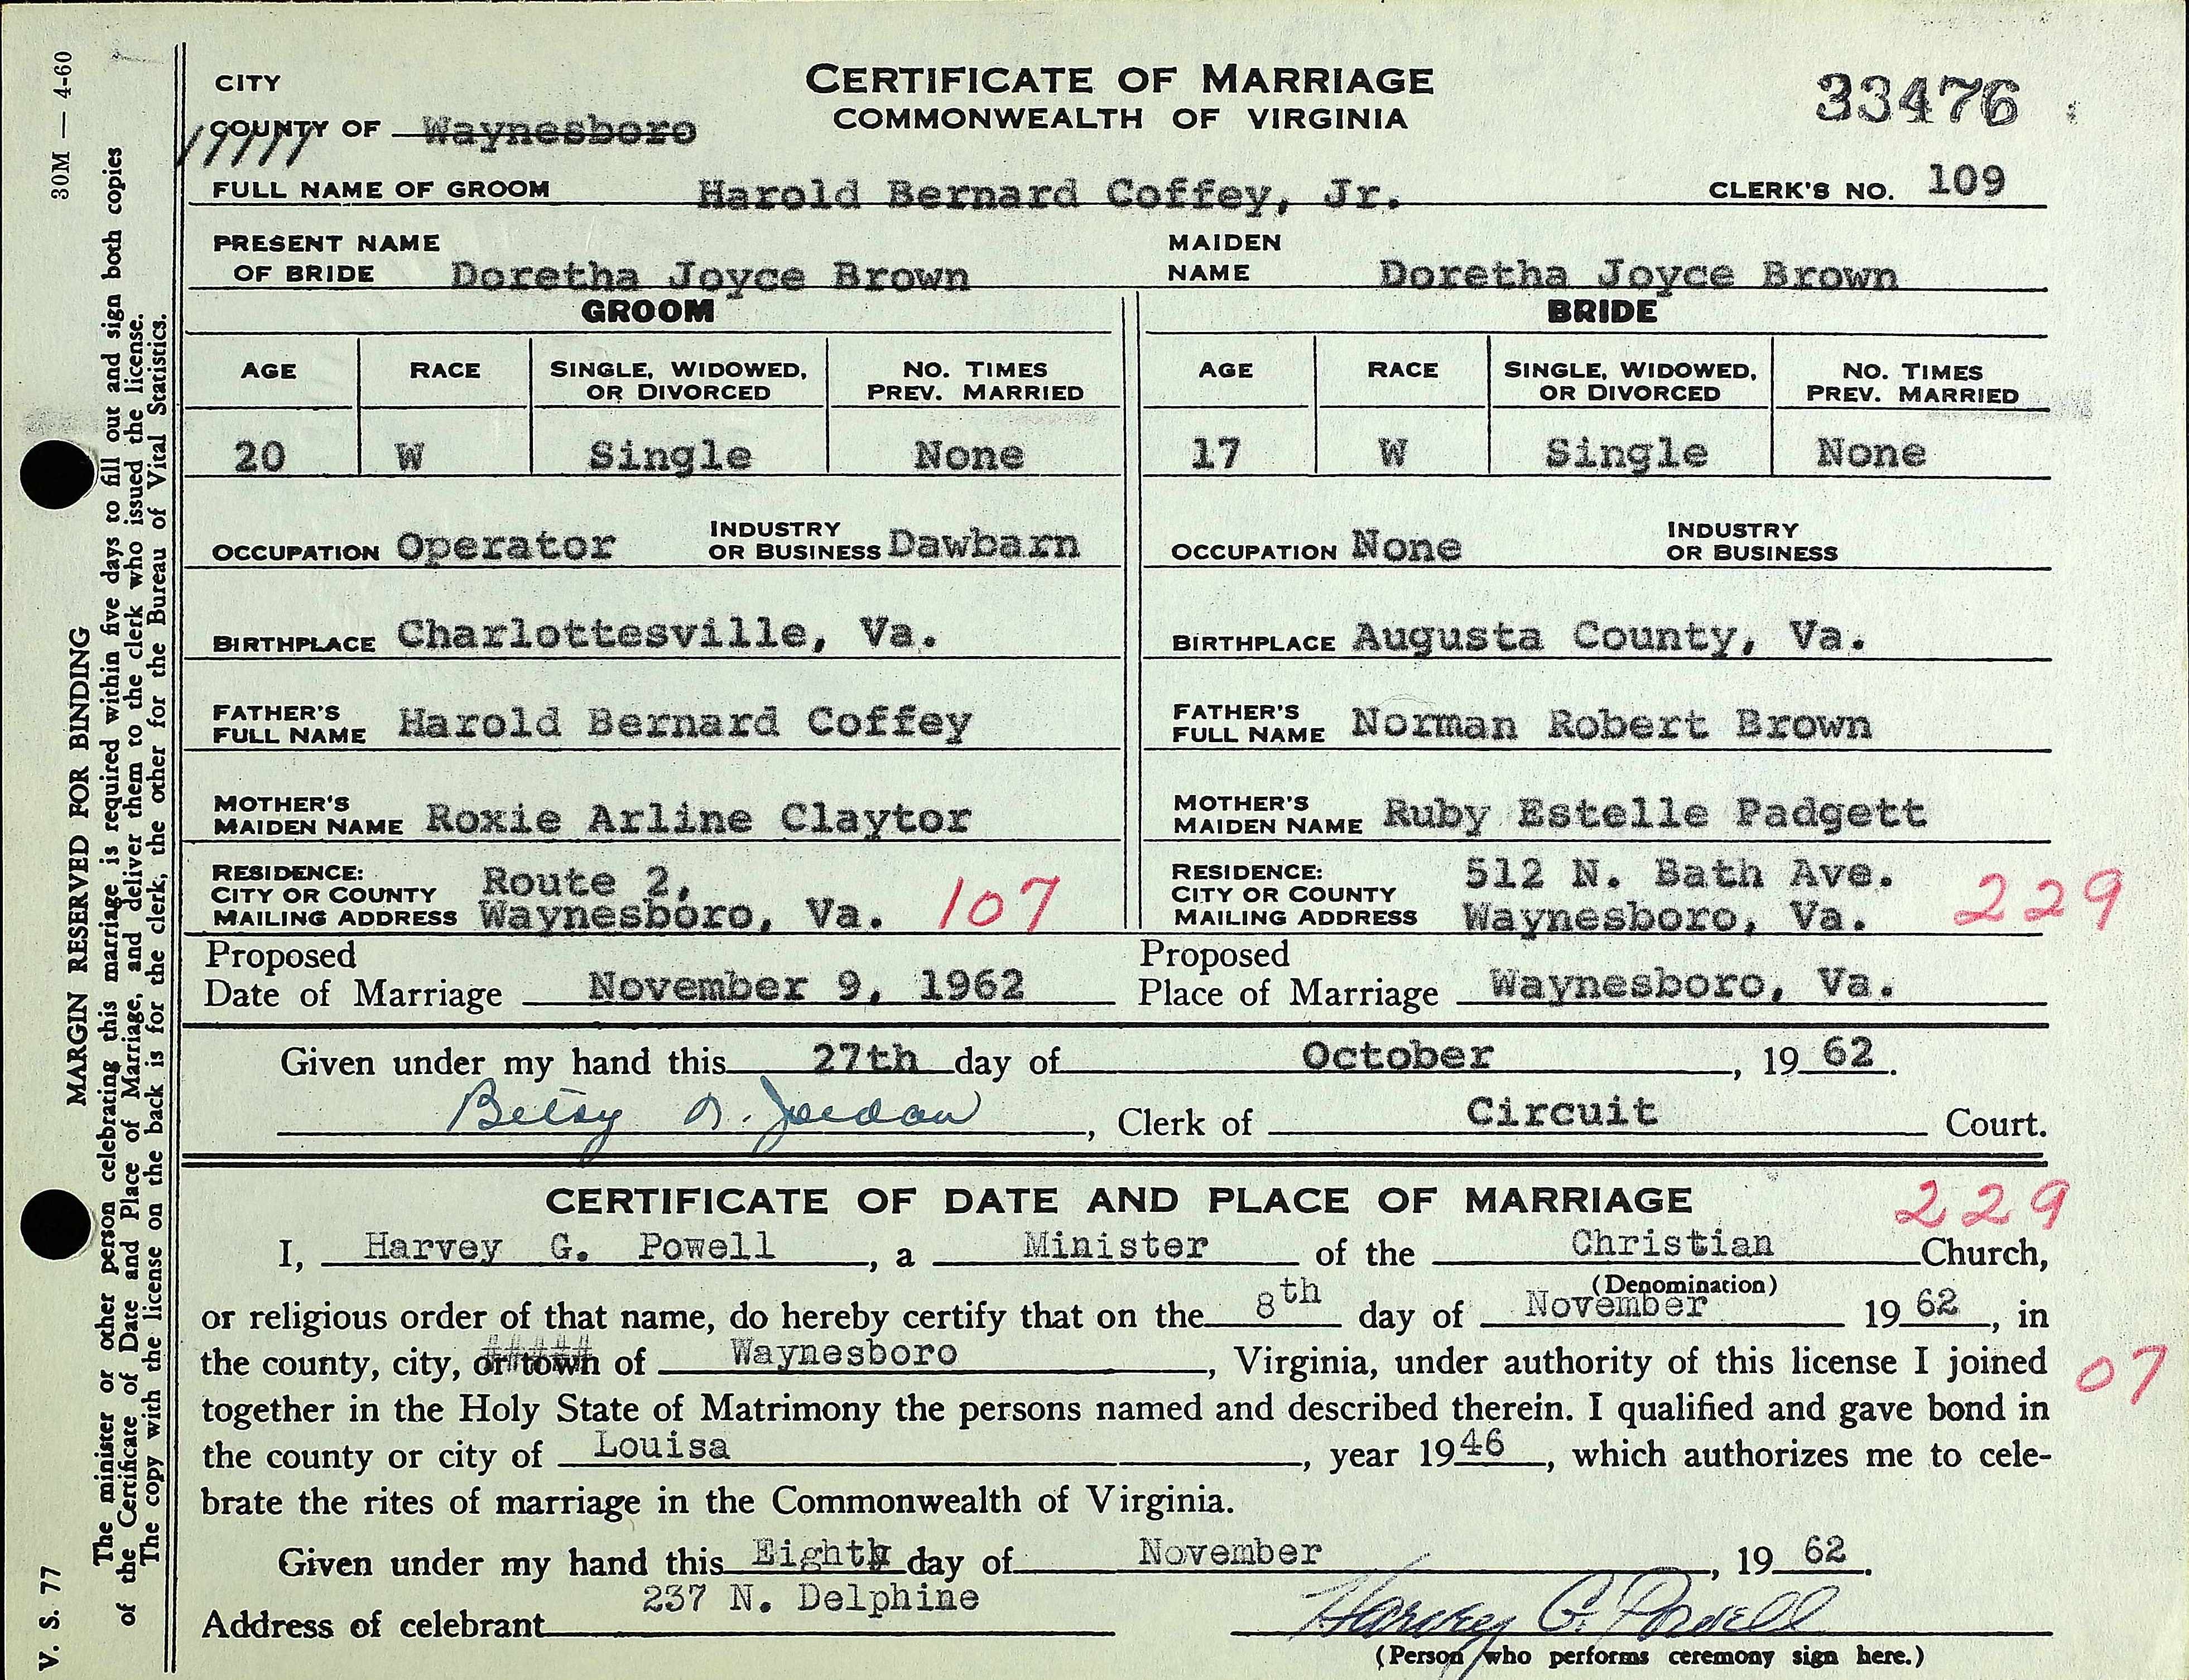 CITY
COUNTY OF Waynesboro
CERTIFICATE OF MARRIAGE
COMMONWEALTH OF VIRGINIA
33476
FULL NAME OF GROOM Harold Bernard Coffey, Jr. CLERK'S NO. 109
PRESENT NAME
OF BRIDE Doretha Joyce Brown
MAIDEN
NAME Doretha Joyce Brown
GROOM
AGE RACE SINGLE, WIDOWED, OR DIVORCED NO. TIMES PREV. MARRIED
20 W Single None
OCCUPATION Operator INDUSTRY OR BUSINESS Dawbarn
BIRTHPLACE Charlottesville, Va.
FATHER'S
FULL NAME Harold Bernard Coffey
MOTHER'S
MAIDEN NAME Roxie Arline Claytor
RESIDENCE: Route 2,
CITY OR COUNTY
MAILING ADDRESS Waynesboro, Va. 107
BRIDE
AGE RACE SINGLE, WIDOWED, OR DIVORCED NO. TIMES PREV. MARRIED
17 W Single None
OCCUPATION None INDUSTRY OR BUSINESS
BIRTHPLACE Augusta County, Va.
FATHER'S
FULL NAME Norman Robert Brown
MOTHER'S
MAIDEN NAME Ruby Estelle Padgett
RESIDENCE: 512 N. Bath Ave.
CITY OR COUNTY
MAILING ADDRESS Waynesboro, Va. 229
Proposed
Date of Marriage November 9, 1962
Proposed
Place of Marriage Waynesboro, Va.
Given under my hand this 27th day of October, 19 62.
Betsy Jordan, Clerk of Circuit Court.
CERTIFICATE OF DATE AND PLACE OF MARRIAGE 229
I, Harvey G. Powell, a Minister of the Christian Church,
(Denomination)
or religious order of that name, do hereby certify that on the 8th day of November 19 62, in
the county, city, or town of Waynesboro, Virginia, under authority of this license I joined 07
together in the Holy State of Matrimony the persons named and described therein. I qualified and gave bond in
the county or city of Louisa, year 19 46, which authorizes me to cele-
brate the rites of marriage in the Commonwealth of Virginia.
Given under my hand this Eighth day of November, 19 62.
Address of celebrant 237 N. Delphine Harvey G. Powell
(Person who performs ceremony sign here.)
V. S. 77 MARGIN RESERVED FOR BINDING 30M — 4-60
The minister or other person celebrating this marriage is required within five days to fill out and sign both copies
of the Certificate of Date and Place of Marriage, and deliver them to the clerk who issued the license.
The copy with the license on the back is for the clerk, the other for the Bureau of Vital Statistics.